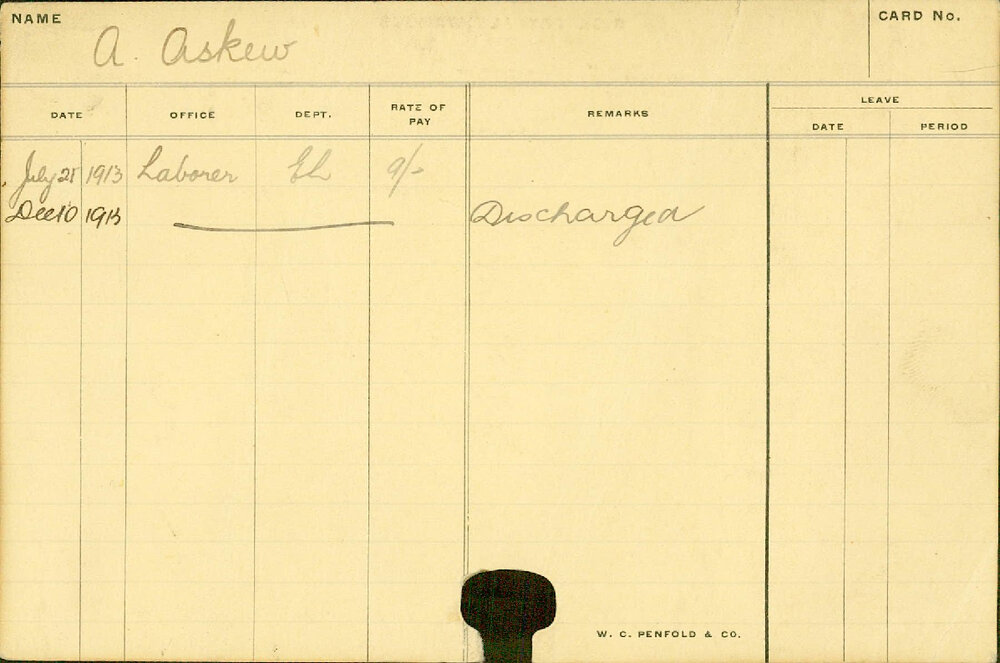 NAME
A. Askew
CARD No.
DATE OFFICE DEPT. RATE OF PAY REMARKS LEAVE
DATE PERIOD
July 21 1913 Laborer EL 9/-
Dec 10 1913 Discharged
W. C. PENFOLD & CO.